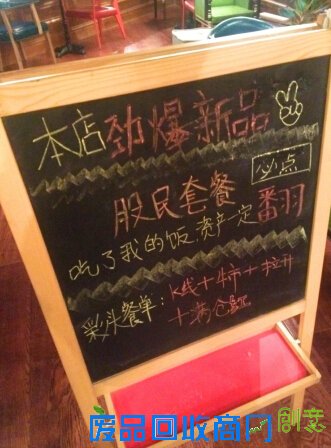 本店劲爆新品
必点
股民套餐
吃了我的饭,资产一定翻羽
彩头餐单:K线+牛市+拉升
+满仓
创意
废品回收商网